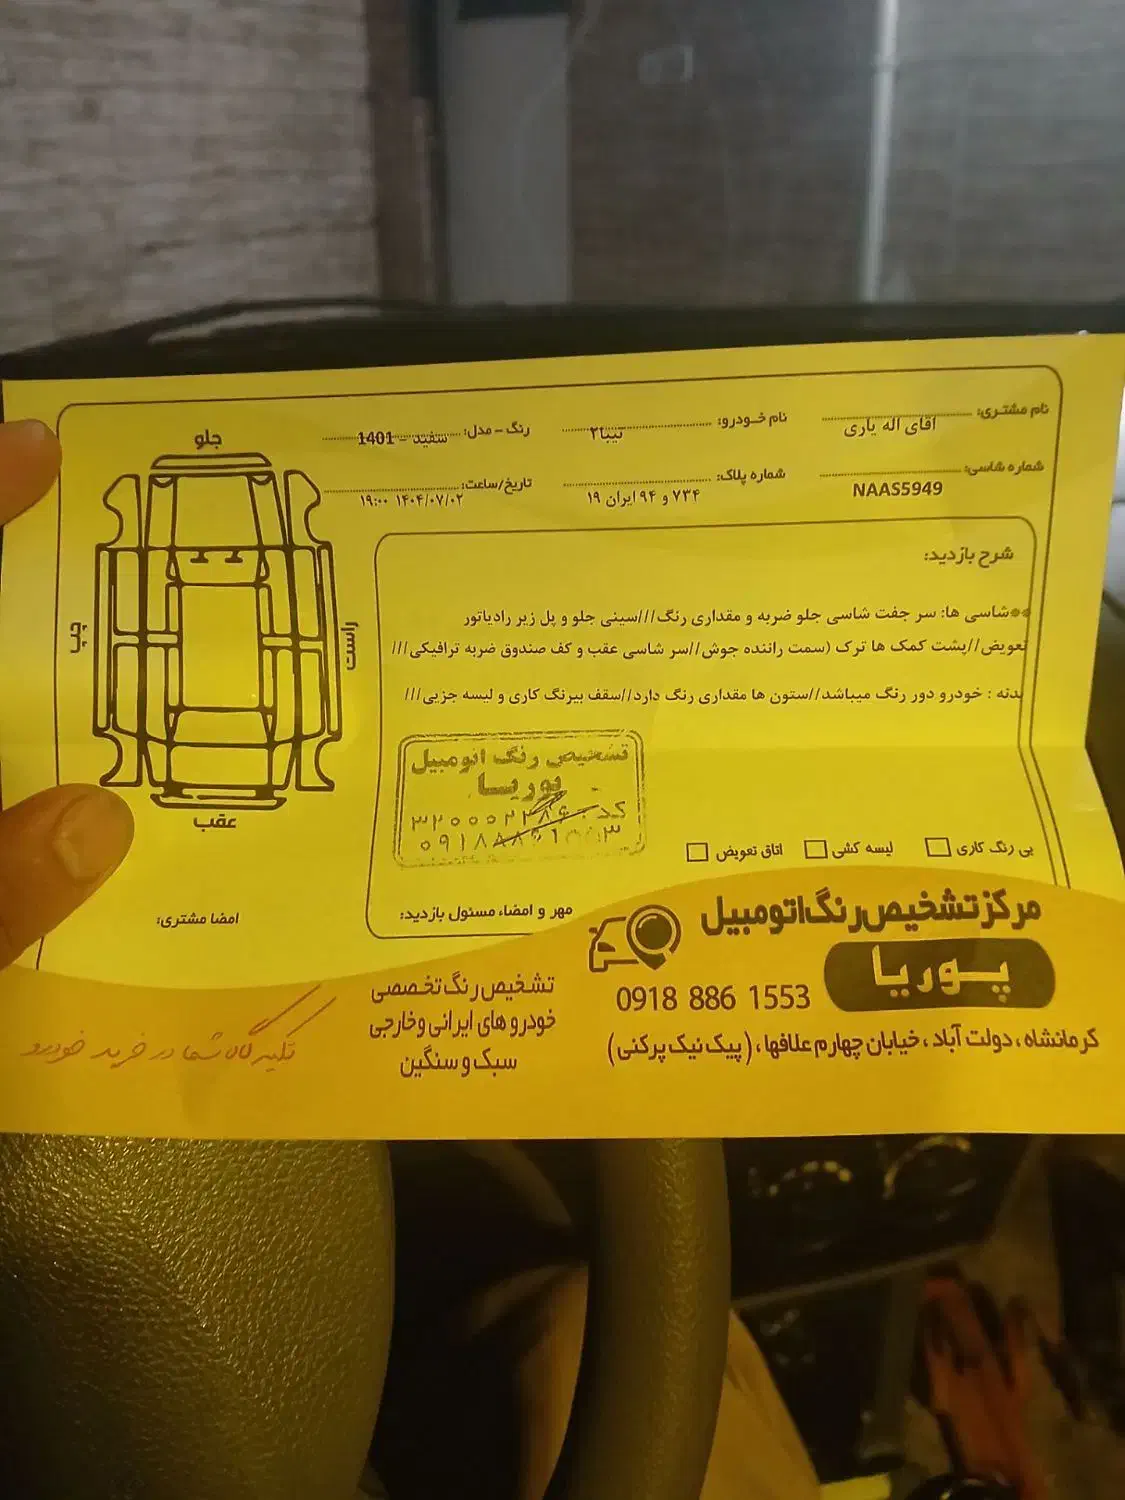 نام مشتری: آقای اله یاری
نام خودرو: تیبا۲
رنگ - مدل: سفید - 1401
شماره شاسی: NAAS5949
شماره پلاک: ۷۳۴ و ۹۴ ایران ۱۹
تاریخ/ساعت: ۱۴۰۴/۰۷/۰۲ ۱۹:۰۰
جلو
چپ
راست
عقب
شرح بازدید:
**شاسی ها: سر جفت شاسی جلو ضربه و مقداری رنگ///سینی جلو و پل زیر رادیاتور
تعویض//پشت کمک ها ترک (سمت راننده جوش//سر شاسی عقب و کف صندوق ضربه ترافیکی///
بدنه : خودرو دور رنگ میباشد//ستون ها مقداری رنگ دارد//سقف بیرنگ کاری و لیسه جزیی///
تشخیص رنگ اتومبیل
پوریا
کد
بی رنگ کاری
لیسه کشی
اتاق تعویض
مهر و امضاء مسئول بازدید:
امضا مشتری:
مرکز تشخیص رنگ اتومبیل
پوریا
0918 886 1553
کرمانشاه ، دولت آباد ، خیابان چهارم علافها ، (پیک نیک پرکنی)
تشخیص رنگ تخصصی
خودرو های ایرانی و خارجی
سبک و سنگین
تکیه گاه شما در خرید خودرو